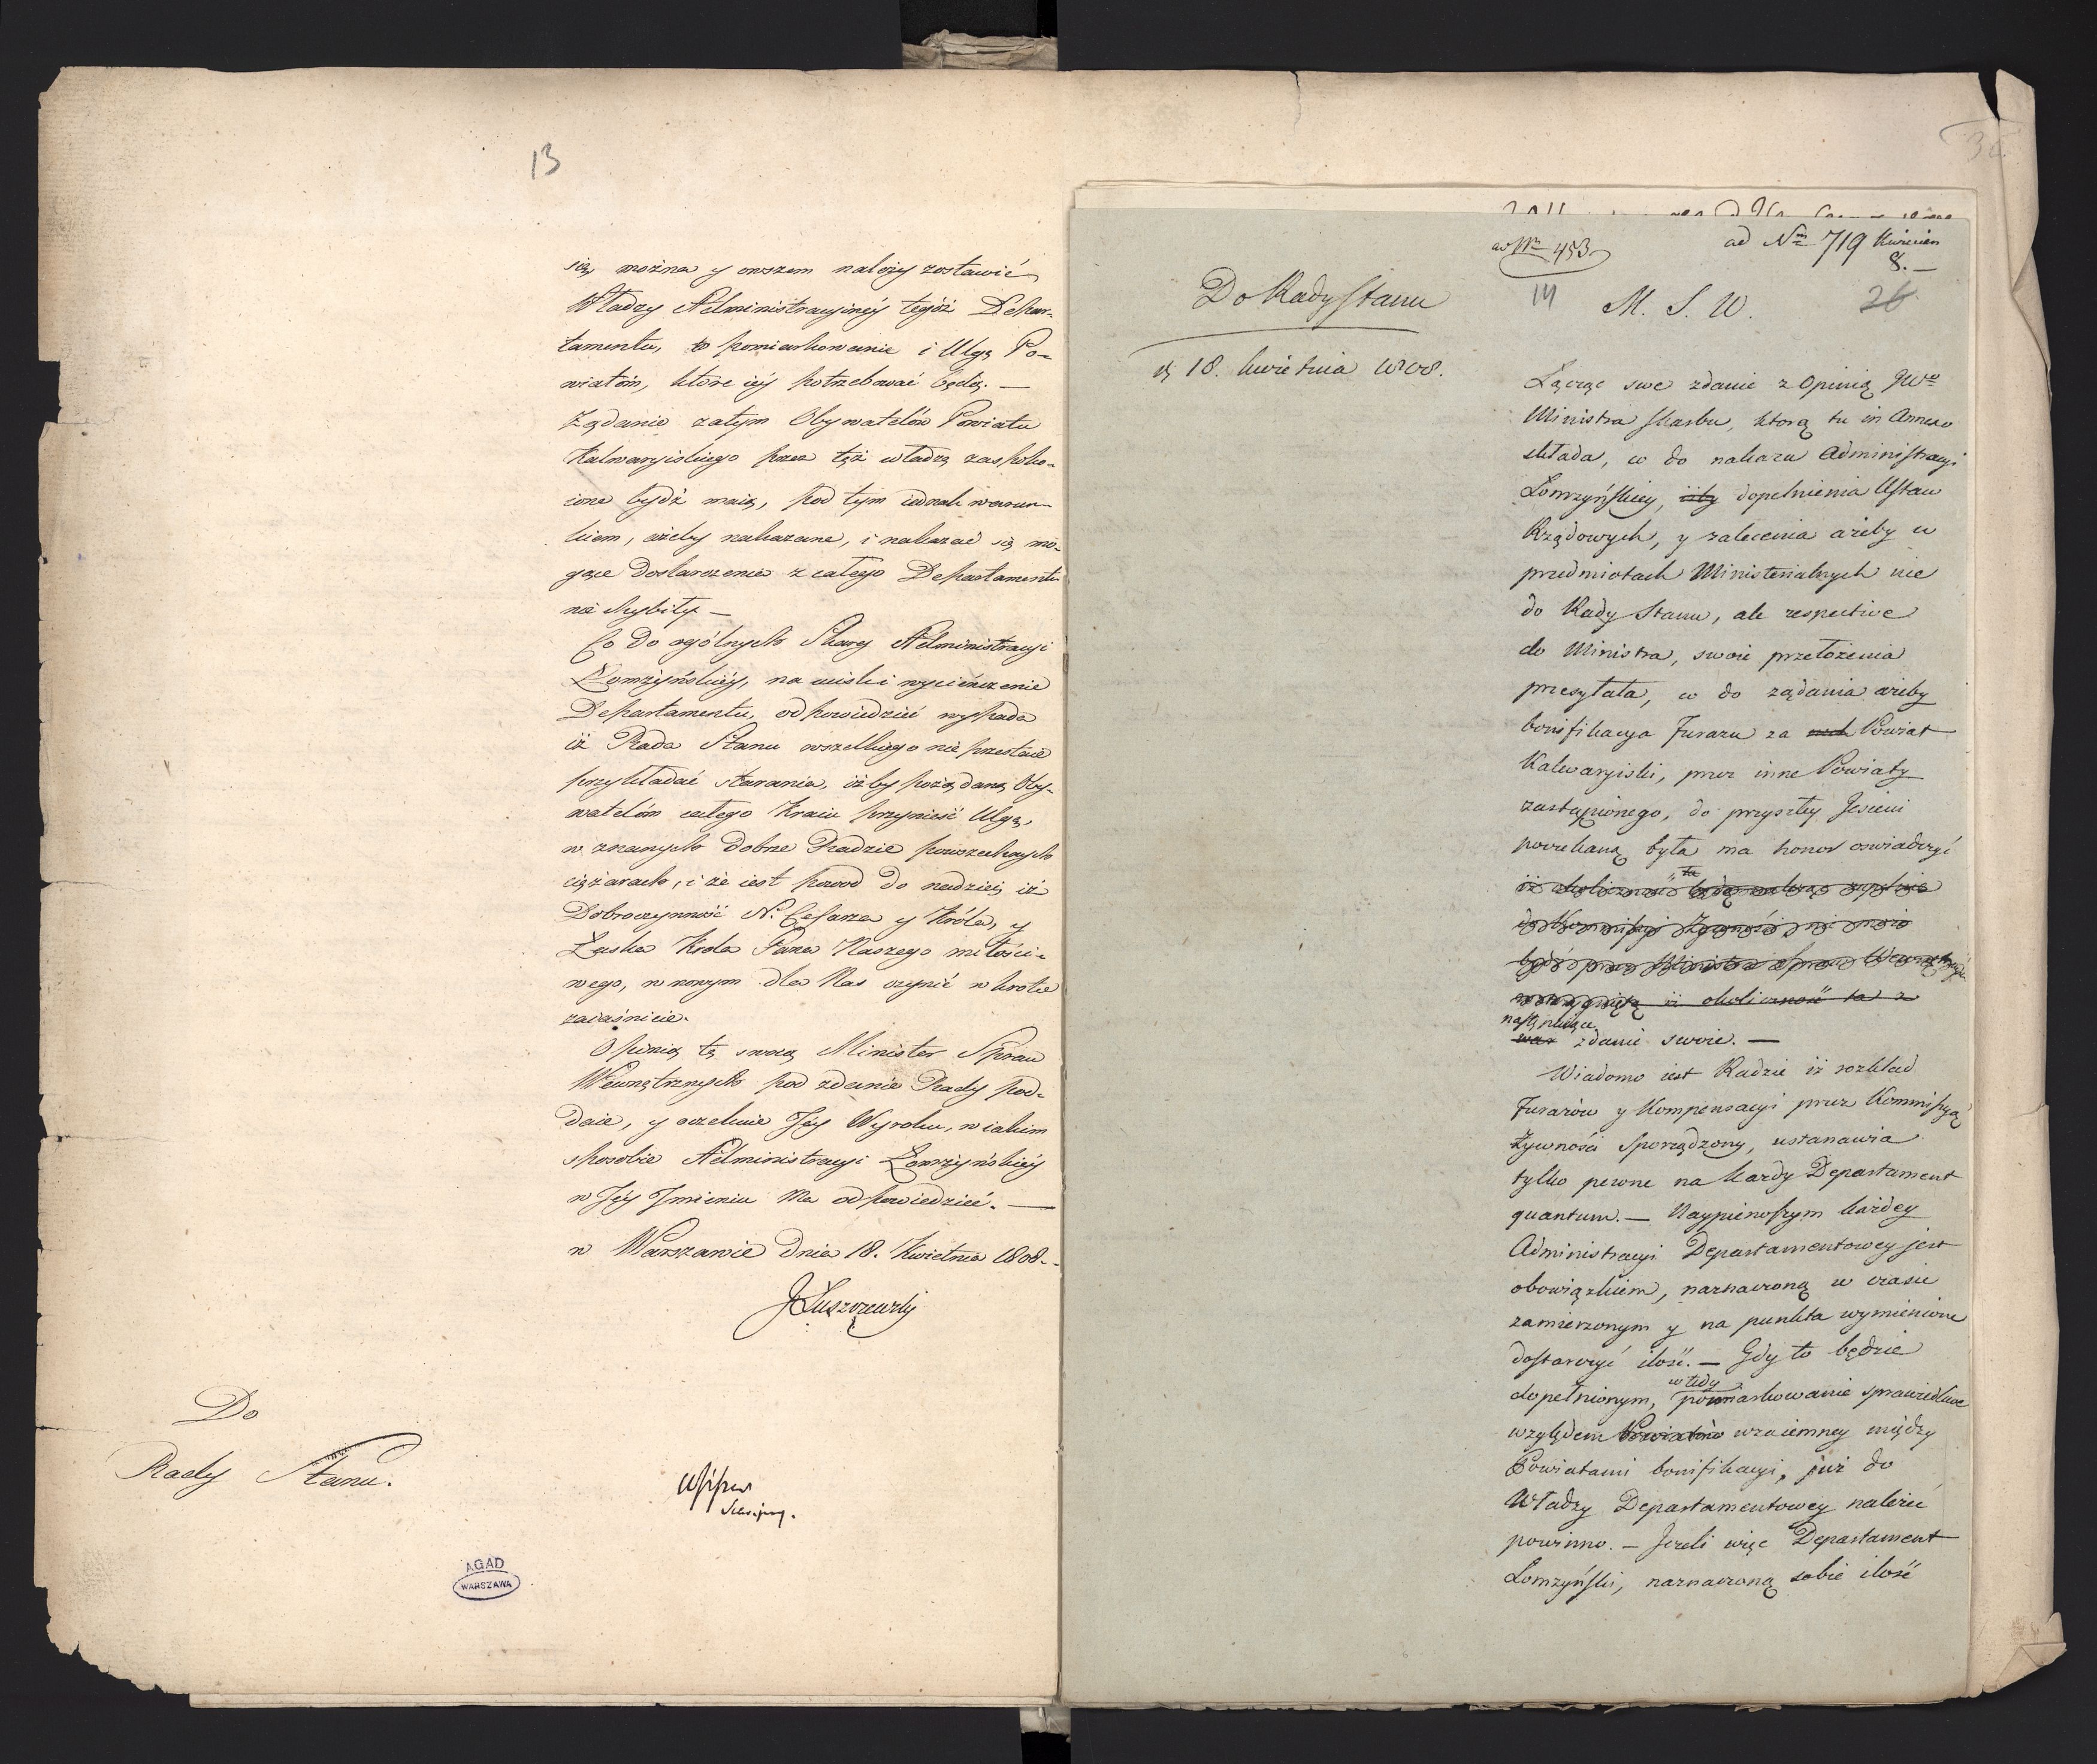 13
się można y owszem należy zostawić
Władzy Administracyinéy tegóż Depar-
tamentu, to pomiarkowanie i Ulgę Po-
wiatóm, które iéy potrzebować będą. —
Żądanie zatym Obywatelów Powiatu
Kalwaryiskiego przez tęż władzę zaspoko-
ione bydź maią, pod tym iednak warun-
kiem, ażeby nakazane, i nakazać się mo-
gące dostarczenia z całego Departamentu
nie chybiły —
Co do ogólnych Skarg Administracyi
Łomżyńskiéy, na uciski i wycieńczenie
Departamentu, odpowiedzieć wypada
iż Rada Stanu wszelkiego nie przestaie
przykładać starania, iżby pożądaną Oby-
watelóm całego Kraiu przynieść Ulgę,
w znanych dobrze Radzie powszechnych
ciężarach, i że iest powod do nadziei iż
Dobroczynność N. Cesarza y Króla, y
Łaska Króla Pana Naszego miłości-
wego, w nowym dla Nas czynie w krotce
zaiaśnieie.
Opinią tę swoią Minister Spraw
Wewnętrznych pod zdanie Rady pod-
daie, y oczekuie Jéy Wyroku, w iakim
sposobie Administracyi Łomżyńskiéy
w Jéy Jmieniu ma odpowiedzieć. —
w Warszawie Dnia 18. Kwietnia 1808.
JŁuszczewski
Do
Rady Stanu.
AGAD
WARSZAWA
ad Nr 453
ad Nm 719 Kwiecien
8. —
Do Rady Stanu
14
M. S. W.
26
18. kwietnia 1808.
Łącząc swe zdanie z Opinią JWo
Ministra Skarbu, ktorą tu in Annexo
składa, co do nakazu Administracyi
Łomżyńskiey, iżby dopełnienia Ustaw
Rządowych, y zalecenia ażeby w
przedmiotach Ministerialnych nie
do Rady Stanu, ale respective
do Ministra, swoie przełożenia
przesyłała, co do żądania ażeby
bonifikacya Furażu za Powiat
Kalwaryiski, przez inne Powiaty
zastąpionego, do przyszłey Jesieni
poczekaną była ma honor oswiadczyć
ta
iż okoliczność ta
następuiące
zdanie swoie. —
Wiadomo iest Radzie iż rozkład
Furażów y Kompensacyi przez Kommissyą
Żywności sporządzony, ustanawia
tylko pewne na każdy Departament
quantum. — Naypierwszym każdey
Administracyi Departamentowey jest
obowiązkiem, naznaczoną w czasie
zamierzonym y na punkta wymienione
dostarczyć ilość. — Gdy to będzie
wtedy
dopełnionym, pomiarkowanie sprawiedliwe
względem Powiatów wzaiemney między
Powiatami bonifikacyi, już do
Władzy Departamentowey należeć
powinno. — Jeżeli więc Departament
Łomżyński, naznaczoną sobie ilość